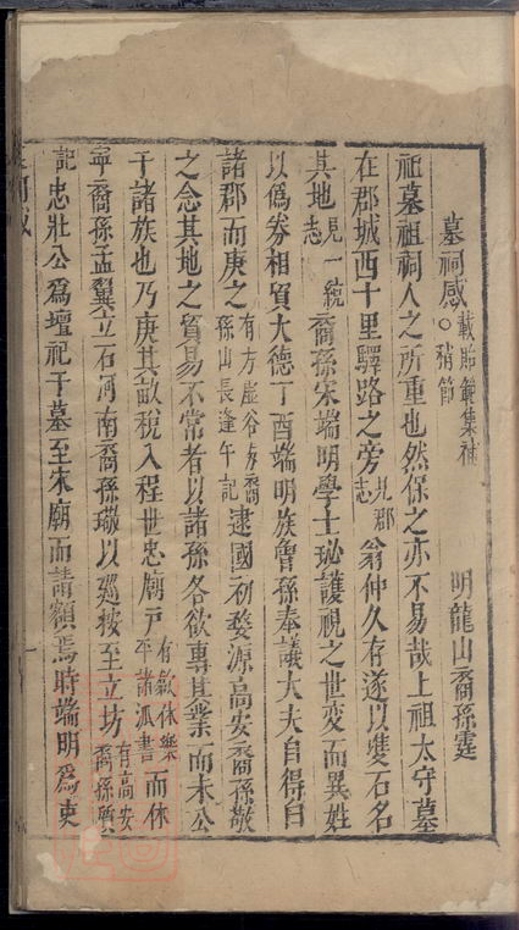 墓祠感○載貽範集補稍節 明龍山裔孫霆
祖墓祖祠人之所重也然保之亦不易哉上祖太守墓
在郡城西十里驛路之旁見郡志翁仲久存遂以雙石名
其地見一統志裔孫宋端明學士珌護視之世變而異姓
以僞券相貿大德丁酉端明族曾孫奉議大夫自得白
諸郡而庚之有方虛谷裔孫山長逢午記逮國初婺源高安裔孫敬
之念其地之貿易不常者以諸孫各欲專其業而未公
于諸族也乃庚其畝稅入程世忠廟戶有歙休樂平諸派書而休
寧裔孫孟翼立石河南裔孫璥以巡按至立坊有高安裔孫質
記忠壯公爲壇祀于墓至宋廟而請額焉時端明爲吏